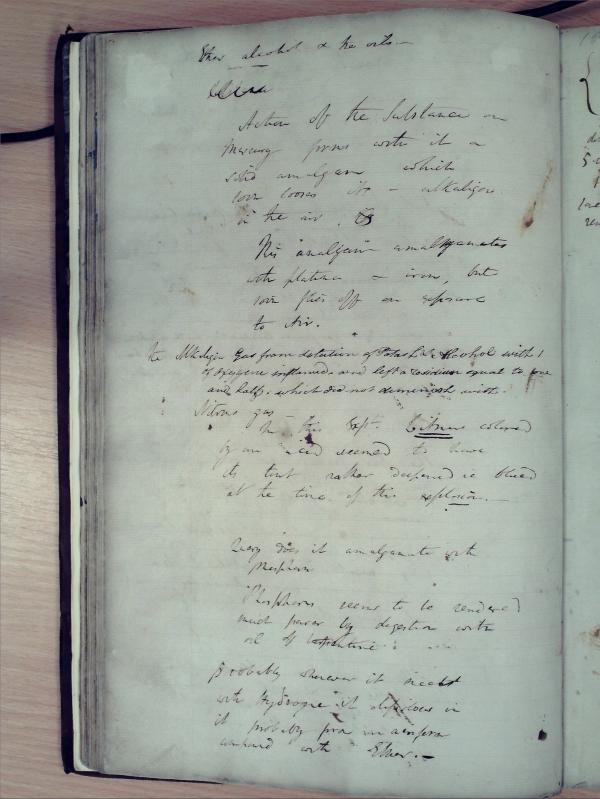 Ether alcohol & the oils —
Action of the Substance on
Mercury forms with it a
solid amalgam which
soon looses its alkaligen
in the air.
This amalgam amalgamates
with platina & iron, but
soon flies off on exposure
to Air.
the Alkaligen Gas from detonation of Potash & Alcohol with 1
of Oxygene inflamed and left a residium equal to one
and half. which did not diminish with
Nitrous gas
In this Expt. Litmus colored
by an acid seemed to have
its tint rather deepened ie blued
at the time of this explosion. —
Query does it amalgamate with
Phosphorus
Phosphorus seems to be rendered
much purer by digestion with
oil of turpentine
Probably wherever it meets
with Hydrogene it dissolves in
it probably from
compound with Ether. —